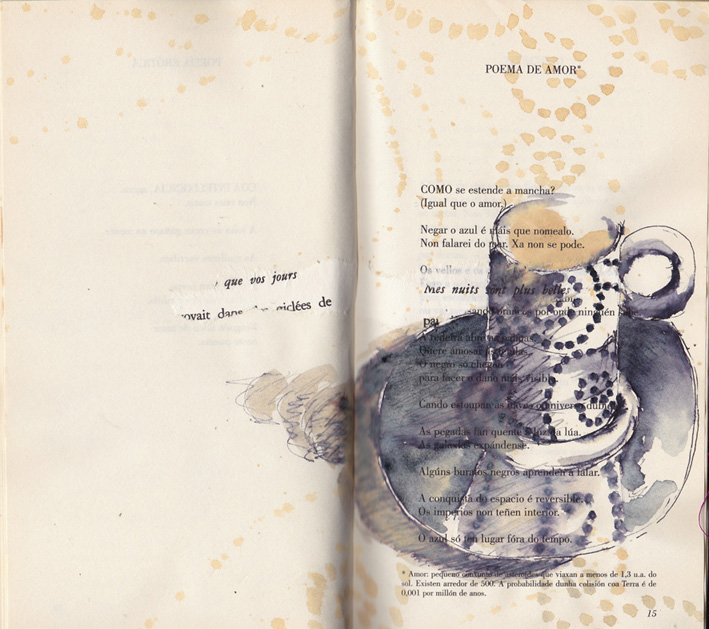 que vos jours
dans giclées de
POEMA DE AMOR*
COMO se estende a mancha?
(Igual que o amor.)
Negar o azul é máis que nomealo.
Non falarei do mar. Xa non se pode.
Os vellos e os
Mes nuits sont plus belles
por onde ninguén
A redeira abre
Quere amosar
O negro só
para facer o dano máis visible.
Cando estoupan as naves o universo
As pegadas fan quente a lúa.
As galaxias expándense.
Algúns buratos negros aprenden a falar.
A conquista do espacio é reversible.
Os imperios non teñen interior.
O azul só ten lugar fóra do tempo.
* Amor: pequeno conxunto de asteroides que viaxan a menos de 1,3 u.a. do
sol. Existen arredor de 500. A probabilidade dunha colisión coa Terra é de
0,001 por millón de anos.
15